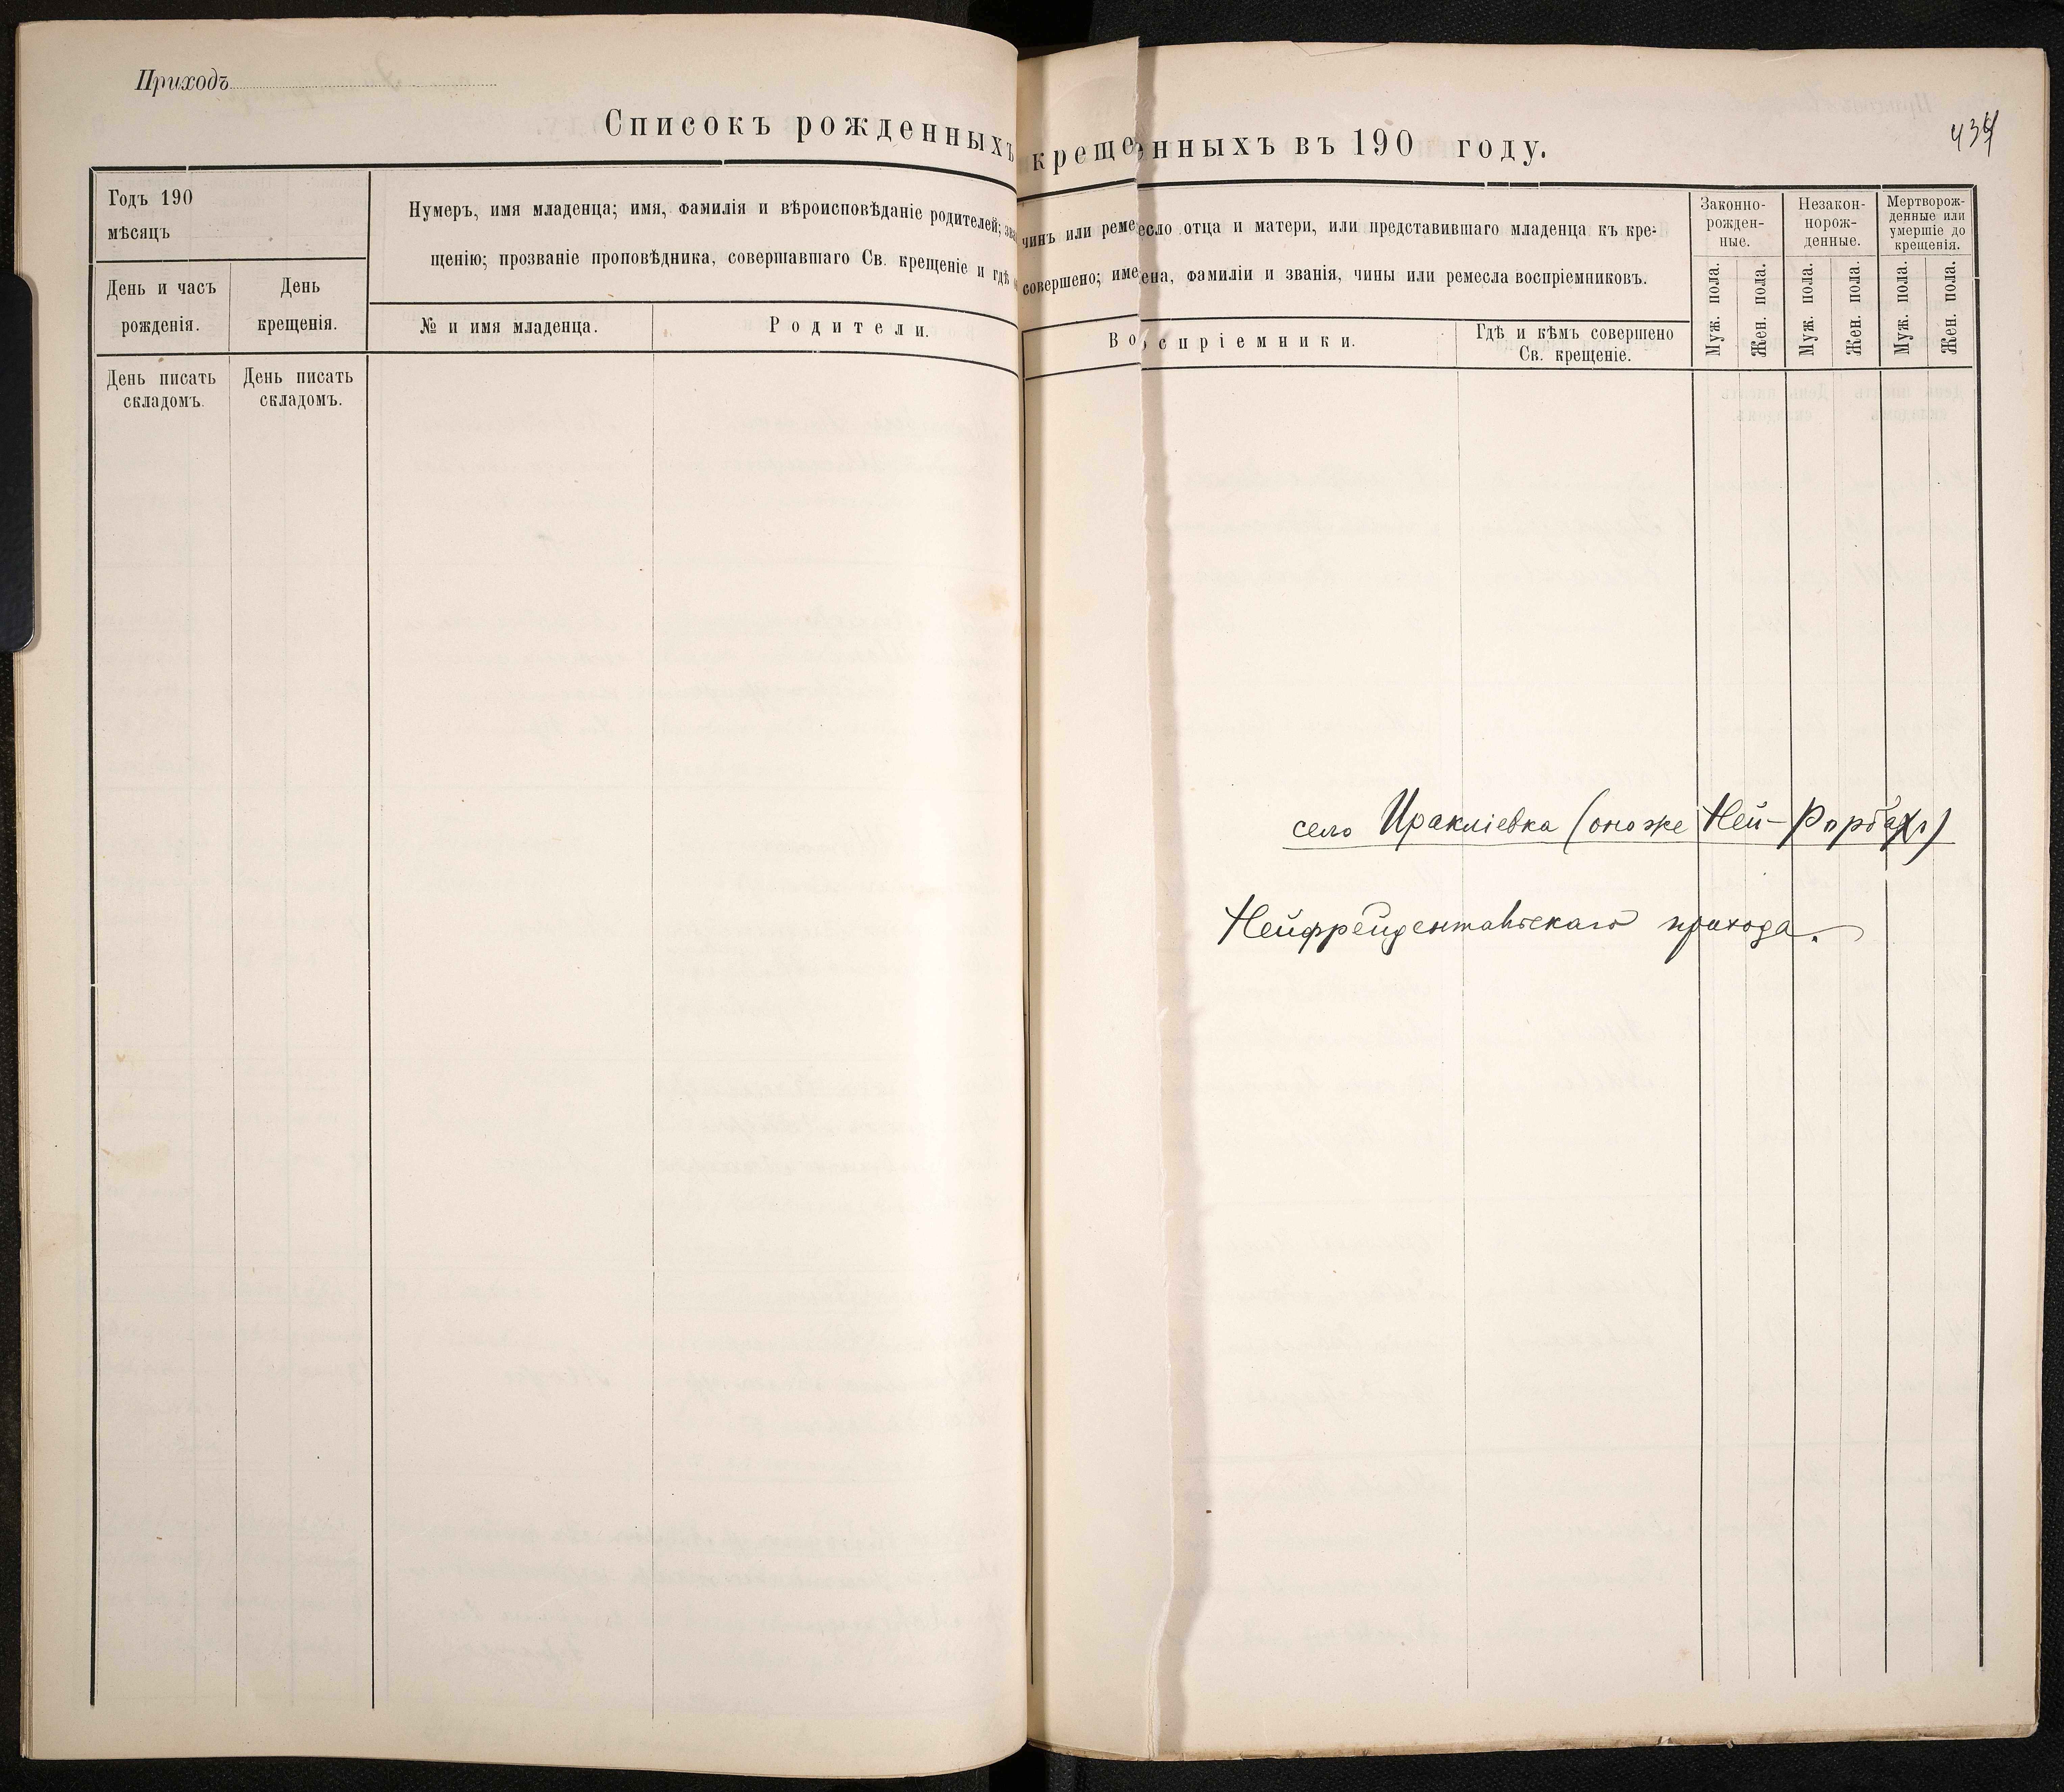 Приходъ
Списокъ рожденныхъ
Годъ 190
мѣсяцъ
Нумеръ, имя младенца; имя, фамилія и вѣроисповѣданіе родителей;
щенію; прозваніе проповѣдника, совершавшаго Св. крещеніе и гдѣ
День и часъ
рожденія.
День
крещенія.
№ и имя младенца.
Родители.
День писать
складомъ.
День писать
складомъ.
крещенныхъ въ 190 году.
434
чинъ или ремесло отца и матери, или представившаго младенца къ кре-
совершено; имена, фамиліи и званія, чины или ремесла воспріемниковъ.
Воспріемники.
Гдѣ и кѣмъ совершено
Св. крещеніе.
Законно-
рожден-
ные.
Незакон-
норож-
денные.
Мертворож-
денные или
умершіе до
крещенія.
Муж. пола.
Жен. пола.
Муж. пола.
Жен. пола.
Муж. пола.
Жен. пола.
село Иракліевка (оно же Ней-Рорбахъ)
Нейфрейдентальскаго прихода.